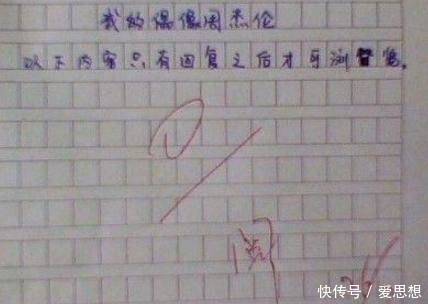 我的偶像周杰伦
以下内容只有回复之后才可浏览。
0
阅
快传号 / 爱思想